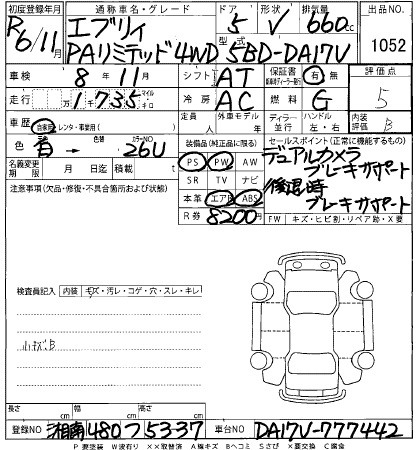 初度登録年月 通称車名・グレード ドア 形状 排気量 出品NO.
R6/11月 エブリィ 5 V 660cc 1052
PAリミテッド 4WD 型式 5BD-DA17V
車検 8年11月 シフト AT 保証書 有 無 評価点
走行 1735 マイル キロ 冷房 AC 燃料 G 5
車歴 自家用 レンタ・事業用( ) 定員 人 外車モデル 年 ディーラー 並行 ハンドル 左・右 内装評価 B
色 → 色替 カラーNO 26U 装備品(純正品に限る) セールスポイント(正常に機能するもの)
名義変更期限 月 日迄 積載 t PS PW AW デュアルカメラ
注意事項(欠品・修復・不具合箇所および改造等) SR TV ナビ ブレーキサポート
本革 エアB ABS 後退時
R券 8200円 ブレーキサポート
FW キズ・ヒビ割・リペア跡・X要
検査員記入 内装 キズ・汚レ・コゲ・穴・スレ・キレ
小キズB
長さ cm 幅 cm 高さ cm
登録NO 湘南 480 つ 5337 車台NO DA17V-777442
P 要塗装 W波有り ××取替済 A線キズ Bヘコミ Sさび ×要交換 C腐食